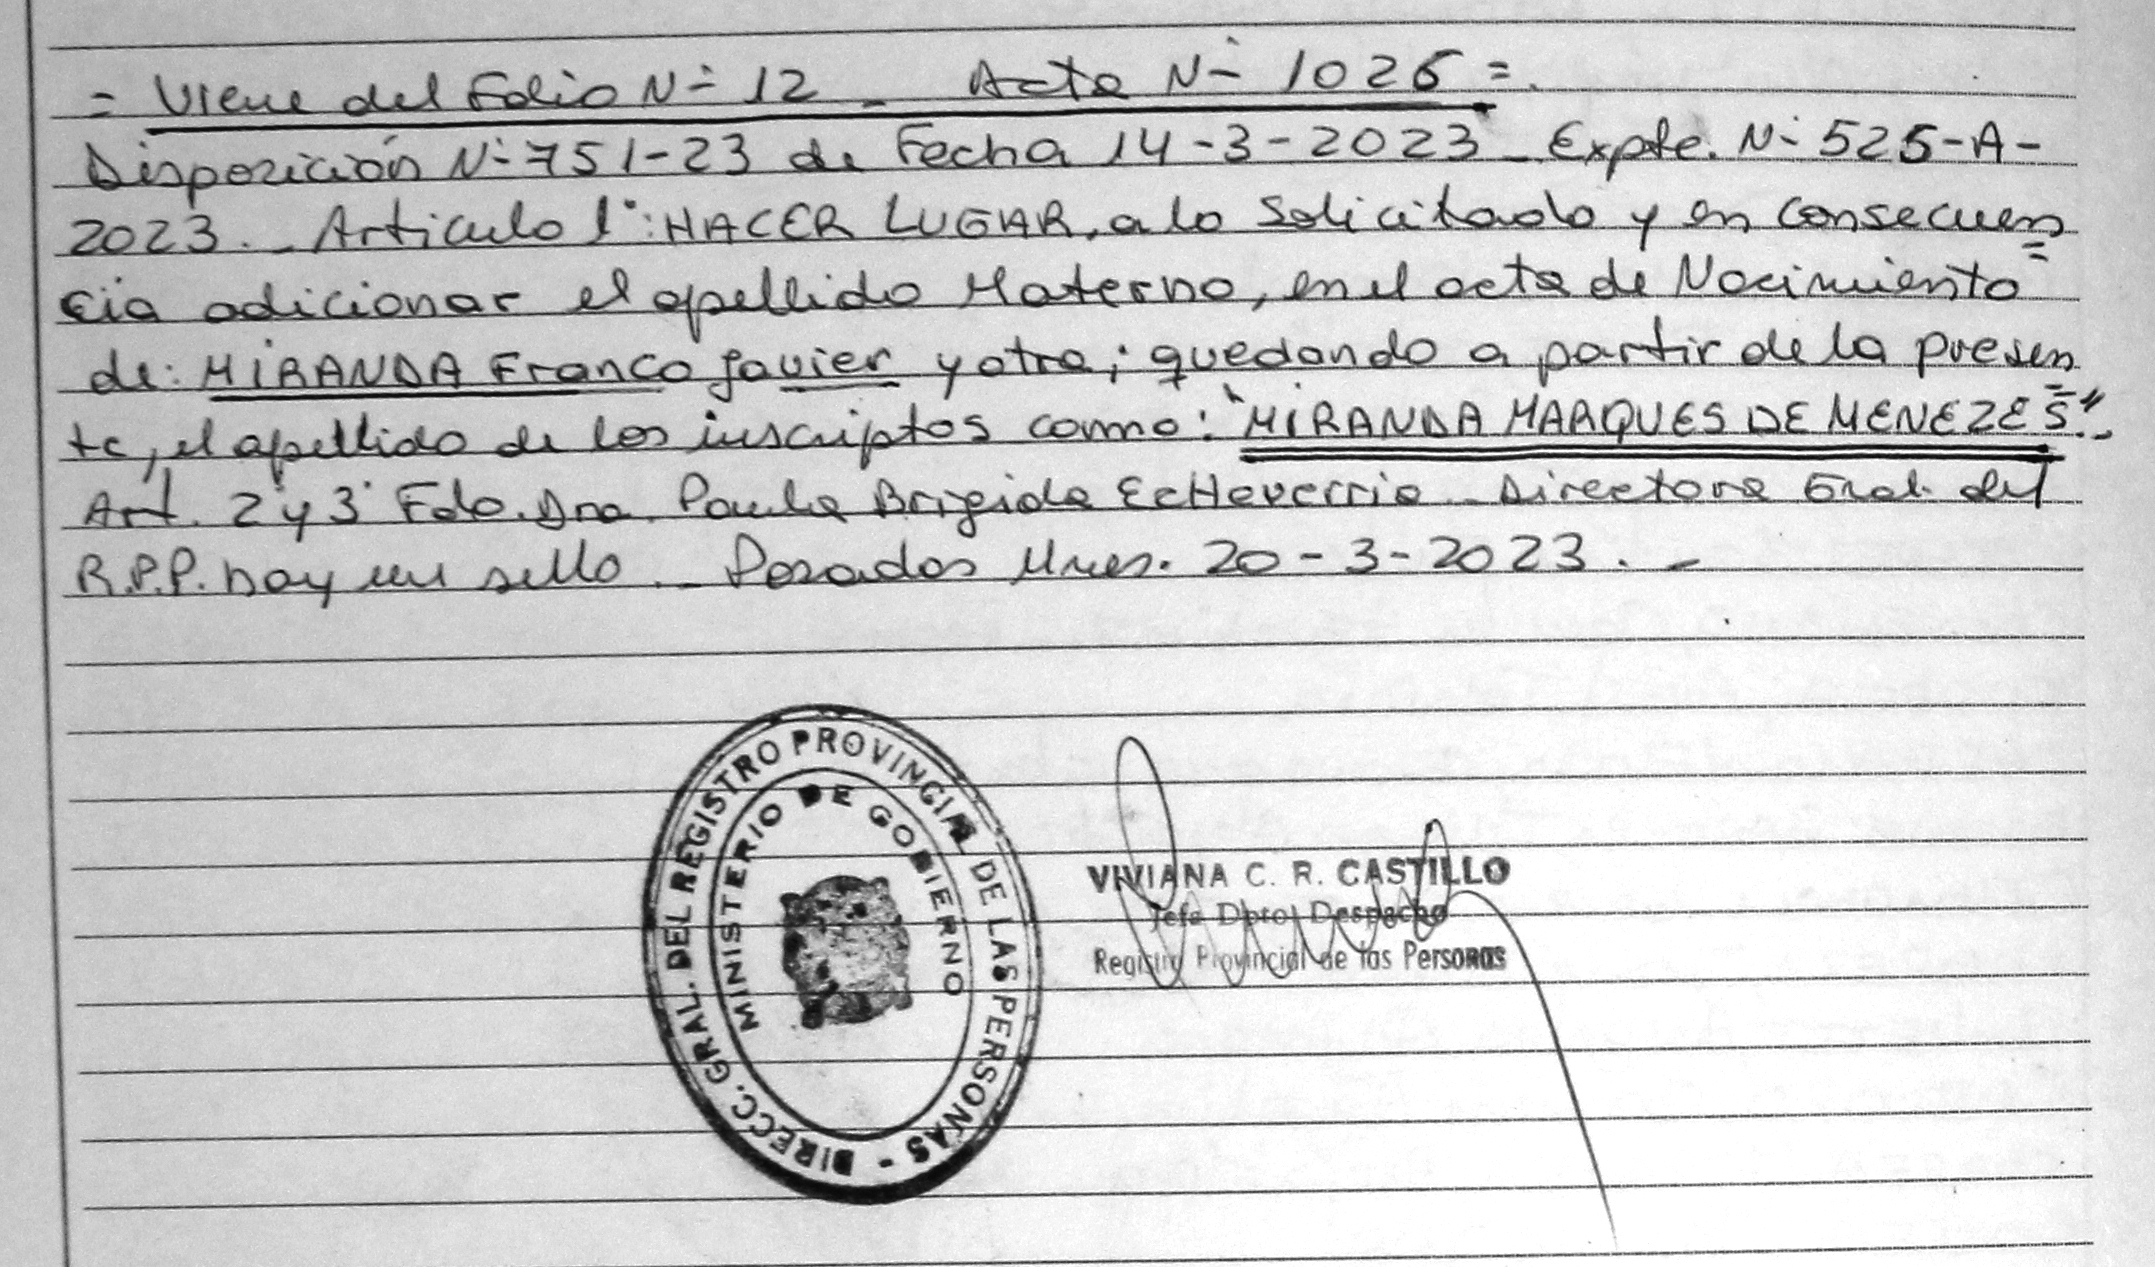 = Viene del Folio Nº 12 - Acta Nº 1026 =.
Disposición Nº 751-23 de Fecha 14-3-2023 - Expte. Nº 525-A-
2023. - Articulo 1°: HACER LUGAR, a lo solicitado y en consecuen
=
cia adicionar el apellido Materno, en el acta de Nacimiento
de: MIRANDA Franco Javier y otra; quedando a partir de la presen
=
te, el apellido de los inscriptos como: "MIRANDA MARQUES DE MENEZES".-
Art. 2 y 3° Fdo. Dra. Paula Brigida Echeverria - Directora Gral. del
R.P.P. hay un sello. - Posadas Mnes. 20-3-2023. -
DIRECC. GRAL. DEL REGISTRO PROVINCIAL DE LAS PERSONAS -
MINISTERIO DE GOBIERNO
VIVIANA C. R. CASTILLO
Jefa Dpto. Despacho
Registro Provincial de las Personas